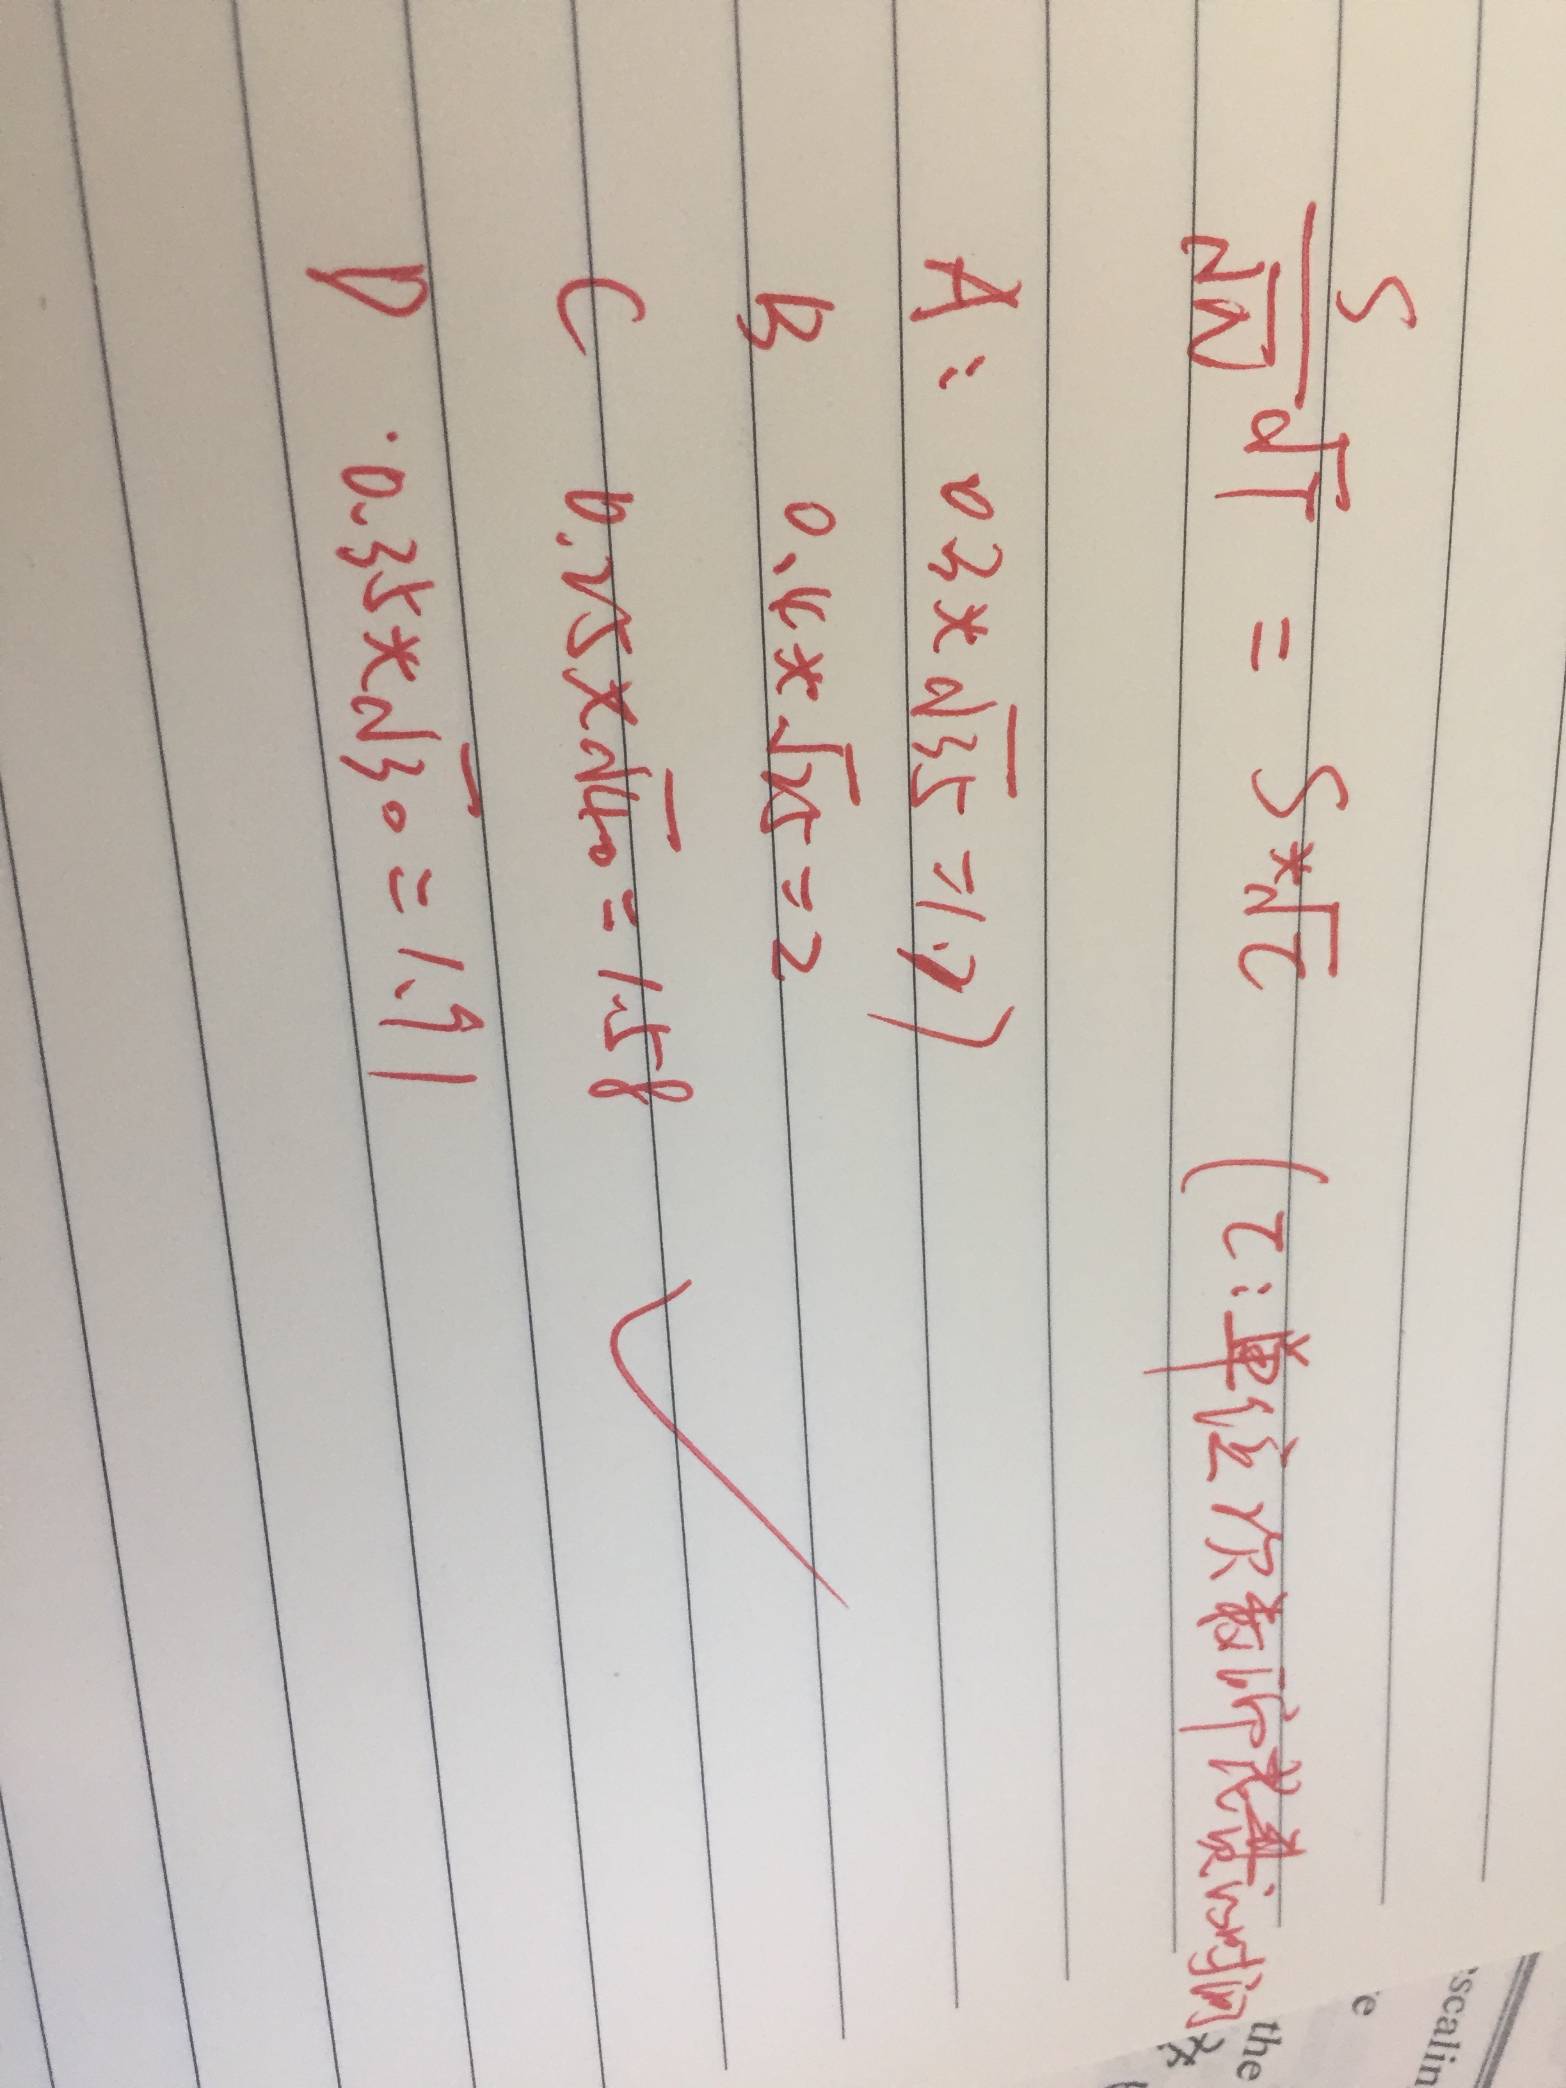 S/√N √T = S*√τ (τ:单位次数所花费时间
A: 0.3*√35 =1.7)
B 0.4*√25 =2
C 0.25×√40 = 1.58 ✓
D .0.35*√30 = 1.91
scalin
e
the